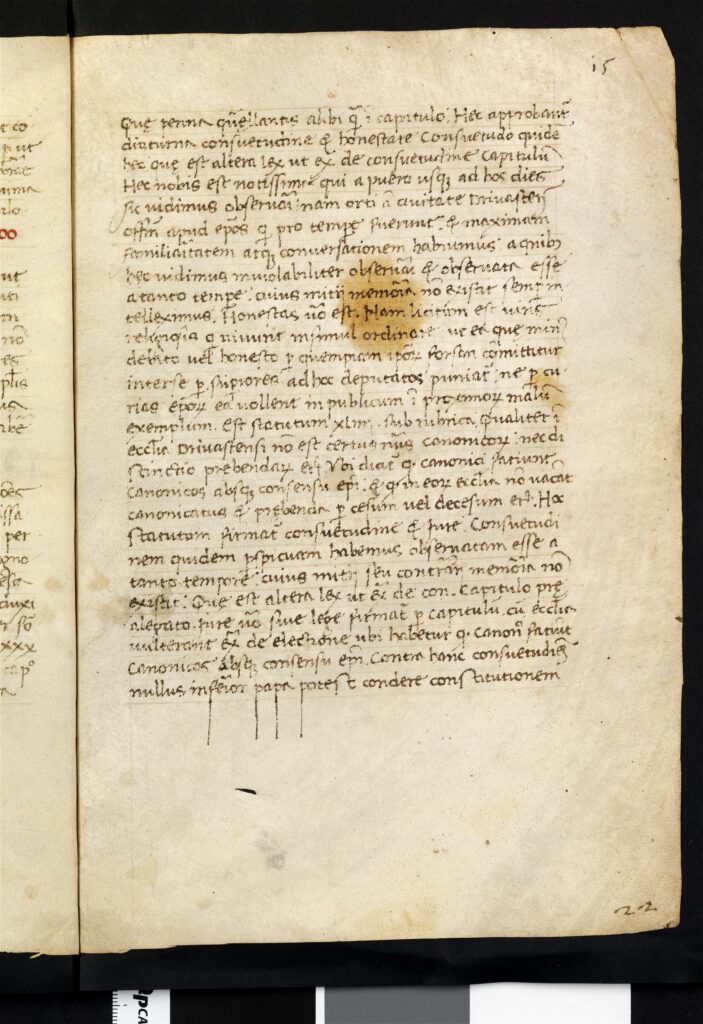 15
Quę penna alibi capitulo. Hec approbant
diuturna consuetudine & honestate Consuetudo quidē
hec quę est altera lex ut ex de consuetudine Capitulū
Hec nobis est notissima qui a puero usq; ad hos dies
sic uidimus obseruari: nam orti ī ciuitate Driuasteñ
apud ep̄os q̄ pro tempe fuerunt: & maximam
familiaritatem atq; conuersationem habuimus: a quib;
hec uidimus inuiolabiliter obseruari & obseruata esse
a tanto tempe: cuius initii memoria nō existit semp in
telleximus. Honestas uō est. Nam licitum est uiris
religiosis q uiuunt insimul ordinate ut ea que min;
debite uel honeste p quempiam forsan cōmittitur
inter se p supiores ad hoc deputatos puniat: ne p cu
rias ep̄oꝝ ea uollent in publicum ī proximoꝝ malū
exemplum. Est statutum xliiii. sub rubrica Qualiter ī
ecclīa Driuastensi nō est certus nūs canonicoꝝ: nec di
stinctio prebendaꝝ Vbi dicat q canonici fatiunt
Canonicos absq; consensu ep̄i: & q in eoꝝ ecclīa nō uacāt
canonicatus & prebenda p cesum uel decesum Hoc
statutum firmat consuetudine & iure. Consuetudi
nem quidem pspicuam habemus obseruatam esse a
tanto tempore: cuius initii seu contrarii memoria nō
existit. Que est altera lex ut ex de con. Capitulo pre
alegato. Iure uō siue lege firmat p capitulū cū ecclīa
uulterant Ex de electione ubi habetur q. Canoñ fatiūt
Canonicos absq; consensu ep̄i. Contra hanc consuetudinē
nullus inferior papa potest condere constitutionem
22